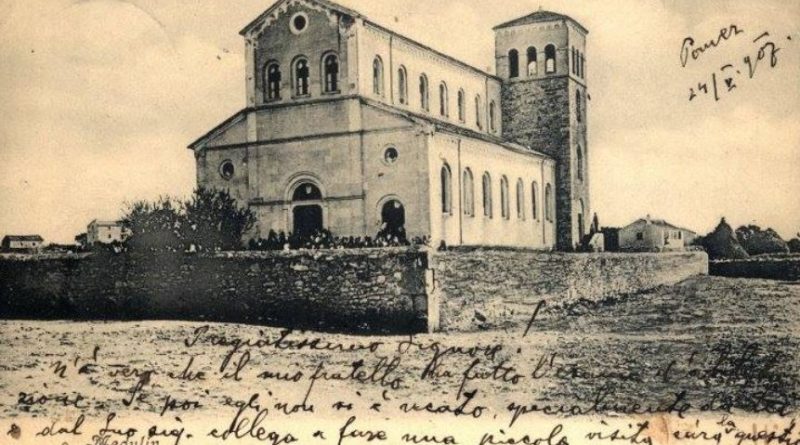 Pomer
24/V. 907.
Pregiatissimo Signore!
N'è vero che il mio fratello ha fatto l'esame d'abilita
zione. Se poi egli non si è recato, specialmente
e dal Suo sig. collega a fare una piccola visita
Medulin